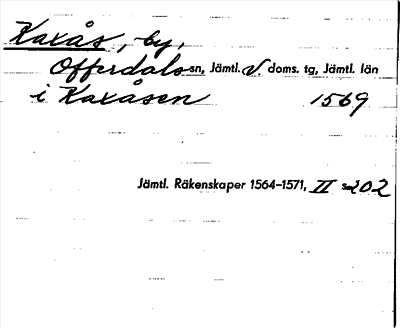 Kaxås, by,
Offerdals sn, Jämtl. V. doms. tg, Jämtl. län
i Kaxåsen 1569
Jämtl. Räkenskaper 1564-1571, II s. 202